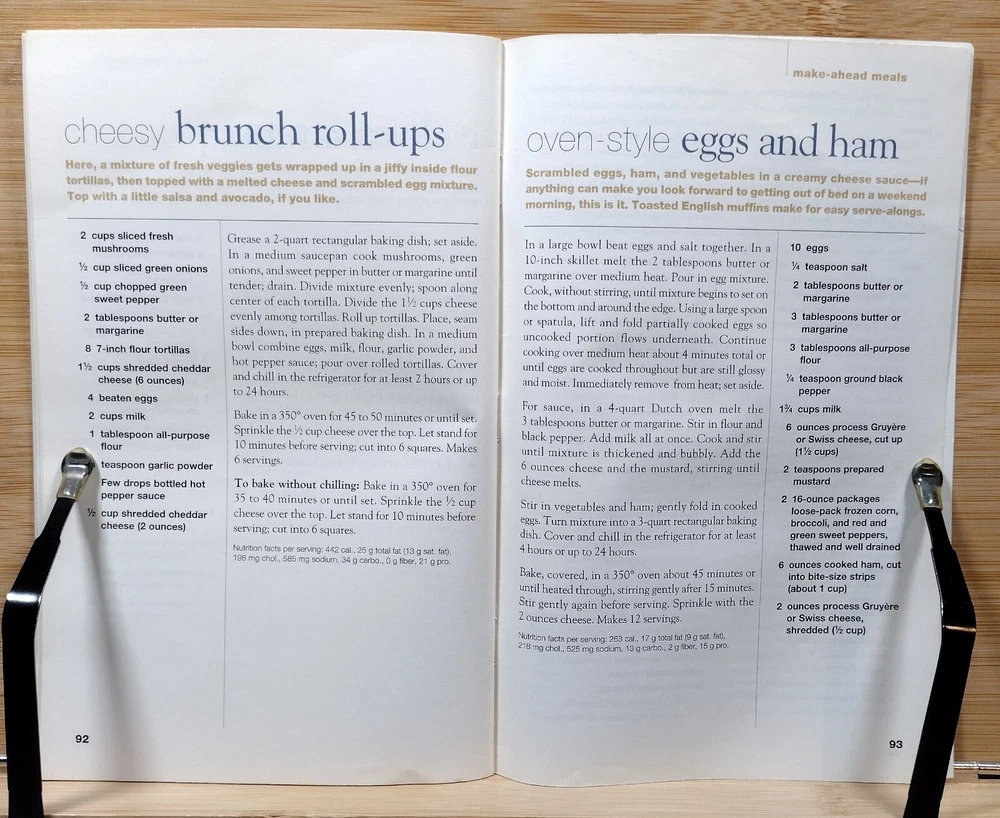 cheesy brunch roll-ups
Here, a mixture of fresh veggies gets wrapped up in a jiffy inside flour
tortillas, then topped with a melted cheese and scrambled egg mixture.
Top with a little salsa and avocado, if you like.
2 cups sliced fresh
mushrooms
½ cup sliced green onions
½ cup chopped green
sweet pepper
2 tablespoons butter or
margarine
8 7-inch flour tortillas
1½ cups shredded cheddar
cheese (6 ounces)
4 beaten eggs
2 cups milk
1 tablespoon all-purpose
flour
teaspoon garlic powder
Few drops bottled hot
pepper sauce
½ cup shredded cheddar
cheese (2 ounces)
Grease a 2-quart rectangular baking dish; set aside.
In a medium saucepan cook mushrooms, green
onions, and sweet pepper in butter or margarine until
tender; drain. Divide mixture evenly; spoon along
center of each tortilla. Divide the 1½ cups cheese
evenly among tortillas. Roll up tortillas. Place, seam
sides down, in prepared baking dish. In a medium
bowl combine eggs, milk, flour, garlic powder, and
hot pepper sauce; pour over rolled tortillas. Cover
and chill in the refrigerator for at least 2 hours or up
to 24 hours.
Bake in a 350° oven for 45 to 50 minutes or until set.
Sprinkle the ½ cup cheese over the top. Let stand for
10 minutes before serving; cut into 6 squares. Makes
6 servings.
To bake without chilling: Bake in a 350° oven for
35 to 40 minutes or until set. Sprinkle the ½ cup
cheese over the top. Let stand for 10 minutes before
serving; cut into 6 squares.
Nutrition facts per serving: 442 cal., 25 g total fat (13 g sat. fat),
198 mg chol., 585 mg sodium, 34 g carbo., 0 g fiber, 21 g pro.
92
make-ahead meals
oven-style eggs and ham
Scrambled eggs, ham, and vegetables in a creamy cheese sauce—if
anything can make you look forward to getting out of bed on a weekend
morning, this is it. Toasted English muffins make for easy serve-alongs.
In a large bowl beat eggs and salt together. In a
10-inch skillet melt the 2 tablespoons butter or
margarine over medium heat. Pour in egg mixture.
Cook, without stirring, until mixture begins to set on
the bottom and around the edge. Using a large spoon
or spatula, lift and fold partially cooked eggs so
uncooked portion flows underneath. Continue
cooking over medium heat about 4 minutes total or
until eggs are cooked throughout but are still glossy
and moist. Immediately remove from heat; set aside.
For sauce, in a 4-quart Dutch oven melt the
3 tablespoons butter or margarine. Stir in flour and
black pepper. Add milk all at once. Cook and stir
until mixture is thickened and bubbly. Add the
6 ounces cheese and the mustard, stirring until
cheese melts.
Stir in vegetables and ham; gently fold in cooked
eggs. Turn mixture into a 3-quart rectangular baking
dish. Cover and chill in the refrigerator for at least
4 hours or up to 24 hours.
Bake, covered, in a 350° oven about 45 minutes or
until heated through, stirring gently after 15 minutes.
Stir gently again before serving. Sprinkle with the
2 ounces cheese. Makes 12 servings.
Nutrition facts per serving: 263 cal., 17 g total fat (9 g sat. fat),
218 mg chol., 525 mg sodium, 13 g carbo., 2 g fiber, 15 g pro.
10 eggs
¼ teaspoon salt
2 tablespoons butter or
margarine
3 tablespoons butter or
margarine
3 tablespoons all-purpose
flour
¼ teaspoon ground black
pepper
1¾ cups milk
6 ounces process Gruyère
or Swiss cheese, cut up
(1½ cups)
2 teaspoons prepared
mustard
2 16-ounce packages
loose-pack frozen corn,
broccoli, and red and
green sweet peppers,
thawed and well drained
6 ounces cooked ham, cut
into bite-size strips
(about 1 cup)
2 ounces process Gruyère
or Swiss cheese,
shredded (½ cup)
93